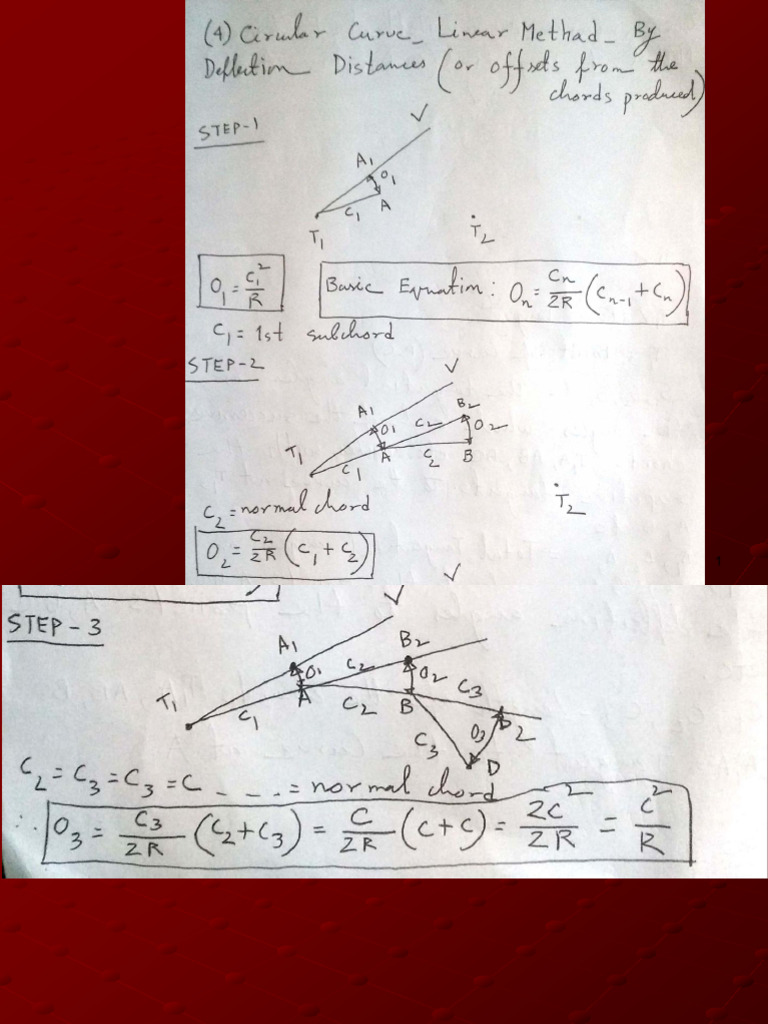 (4) Circular Curve_ Linear Methad_ By
Deflection Distances (or offsets from the
chords produced)
STEP-1
V
A1
O1
C1
A
T1
T2
O1 = C1²/R
Basic Equation: On = Cn/2R (Cn-1 + Cn)
C1 = 1st subchord
STEP-2
V
A1
B2
O1
C2
O2
T1
A
C2
B
C1
C2 = normal chord
T2
O2 = C2/2R (C1 + C2)
1
V
V
STEP-3
A1
B2
O1
C2
O2
C3
T1
A
C2
B
C1
D2
C3
O3
D
C2 = C3 = C3 = C - - - - = normal chord
∴ O3 = C3/2R (C2 + C3) = C/2R (C + C) = 2C²/2R = C²/R